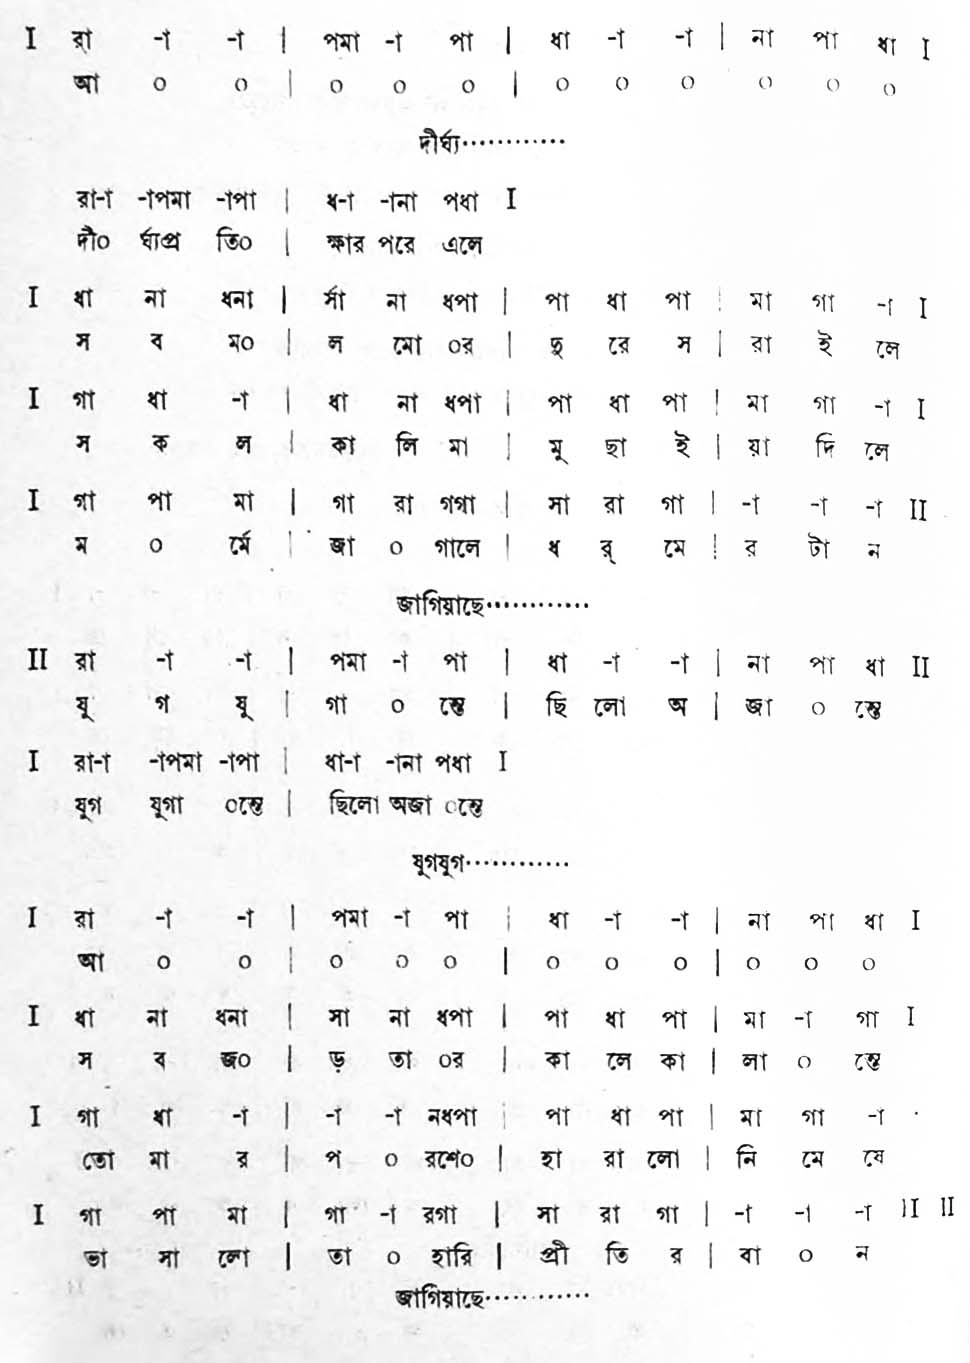 I রা -া -া | পমা -া পা | ধা -া -া | না পা ধা I
আ ০ ০ | ০ ০ ০ | ০ ০ ০ ০ ০ ০
দীর্ঘ্য············
রা-া -াপমা -াপা | ধ-া -ানা পধা I
দী০ র্ঘ্যপ্র তি০ | ক্ষার পরে এলে
I ধা না ধনা | র্সা না ধপা | পা ধা পা | মা গা -া I
স ব ম০ | ল মো ০র | দু রে স | রা ই লে
I গা ধা -া | ধা না ধপা | পা ধা পা | মা গা -া I
স ক ল | কা লি মা | মু ছা ই | য়া দি লে
I গা পা মা | গা রা গগা | সা রা গা | -া -া -া II
ম ০ র্মে | জা ০ গালে | ধ র্ মে | র টা ন
জাগিয়াছে············
II রা -া -া | পমা -া পা | ধা -া -া | না পা ধা II
যু গ যু | গা ০ ন্তে | ছি লো অ | জা ০ন্তে
I রা-া -াপমা -াপা | ধা-া -ানা পধা I
যুগ যুগা ০ন্তে | ছিলো অজা ০ন্তে
যুগযুগ············
I রা -া -া | পমা -া পা | ধা -া -া | না পা ধা I
আ ০ ০ | ০ ০ ০ | ০ ০ ০ | ০ ০ ০
I ধা না ধনা | সা না ধপা | পা ধা পা | মা -া গা I
স ব জ০ | ড় তা ০র | কা লে কা | লা ০ ন্তে
I গা ধা -া | -া -া নধপা | পা ধা পা | মা গা -া
তো মা র | প ০ রশে০ | হা রা লো | নি মে ষে
I গা পা মা | গা -া রগা | সা রা গা | -া -া -া II II
ভা সা লো | তা ০ হারি | প্রী তি র | বা ০ ন
জাগিয়াছে············